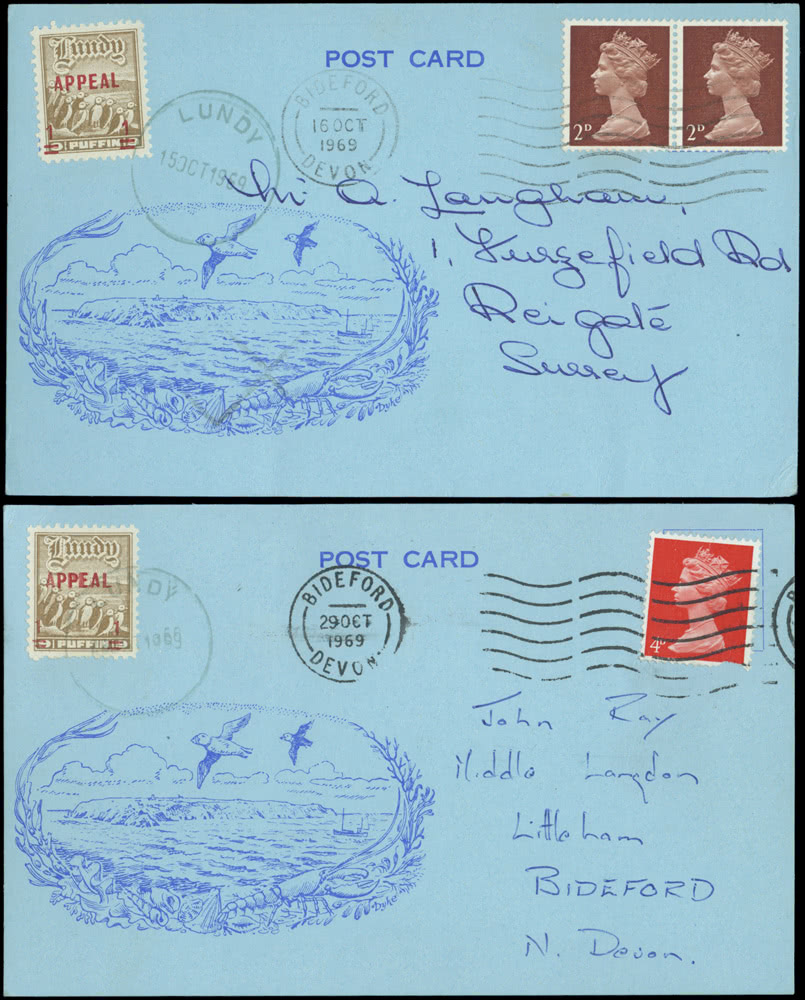 Lundy
APPEAL
1 1
PUFFIN
POST CARD
LUNDY
15 OCT 1969
BIDEFORD
16 OCT
1969
DEVON
2D
2D
Mr A. Langham,
1, Furzefield Rd
Reigate
Surrey
Duke
Lundy
APPEAL
1
PUFFIN
POST CARD
NDY
1969
BIDEFORD
29 OCT
1969
DEVON
4D
B
John Ray
Middle Langdon
Littleham
BIDEFORD
N. Devon.
Duke